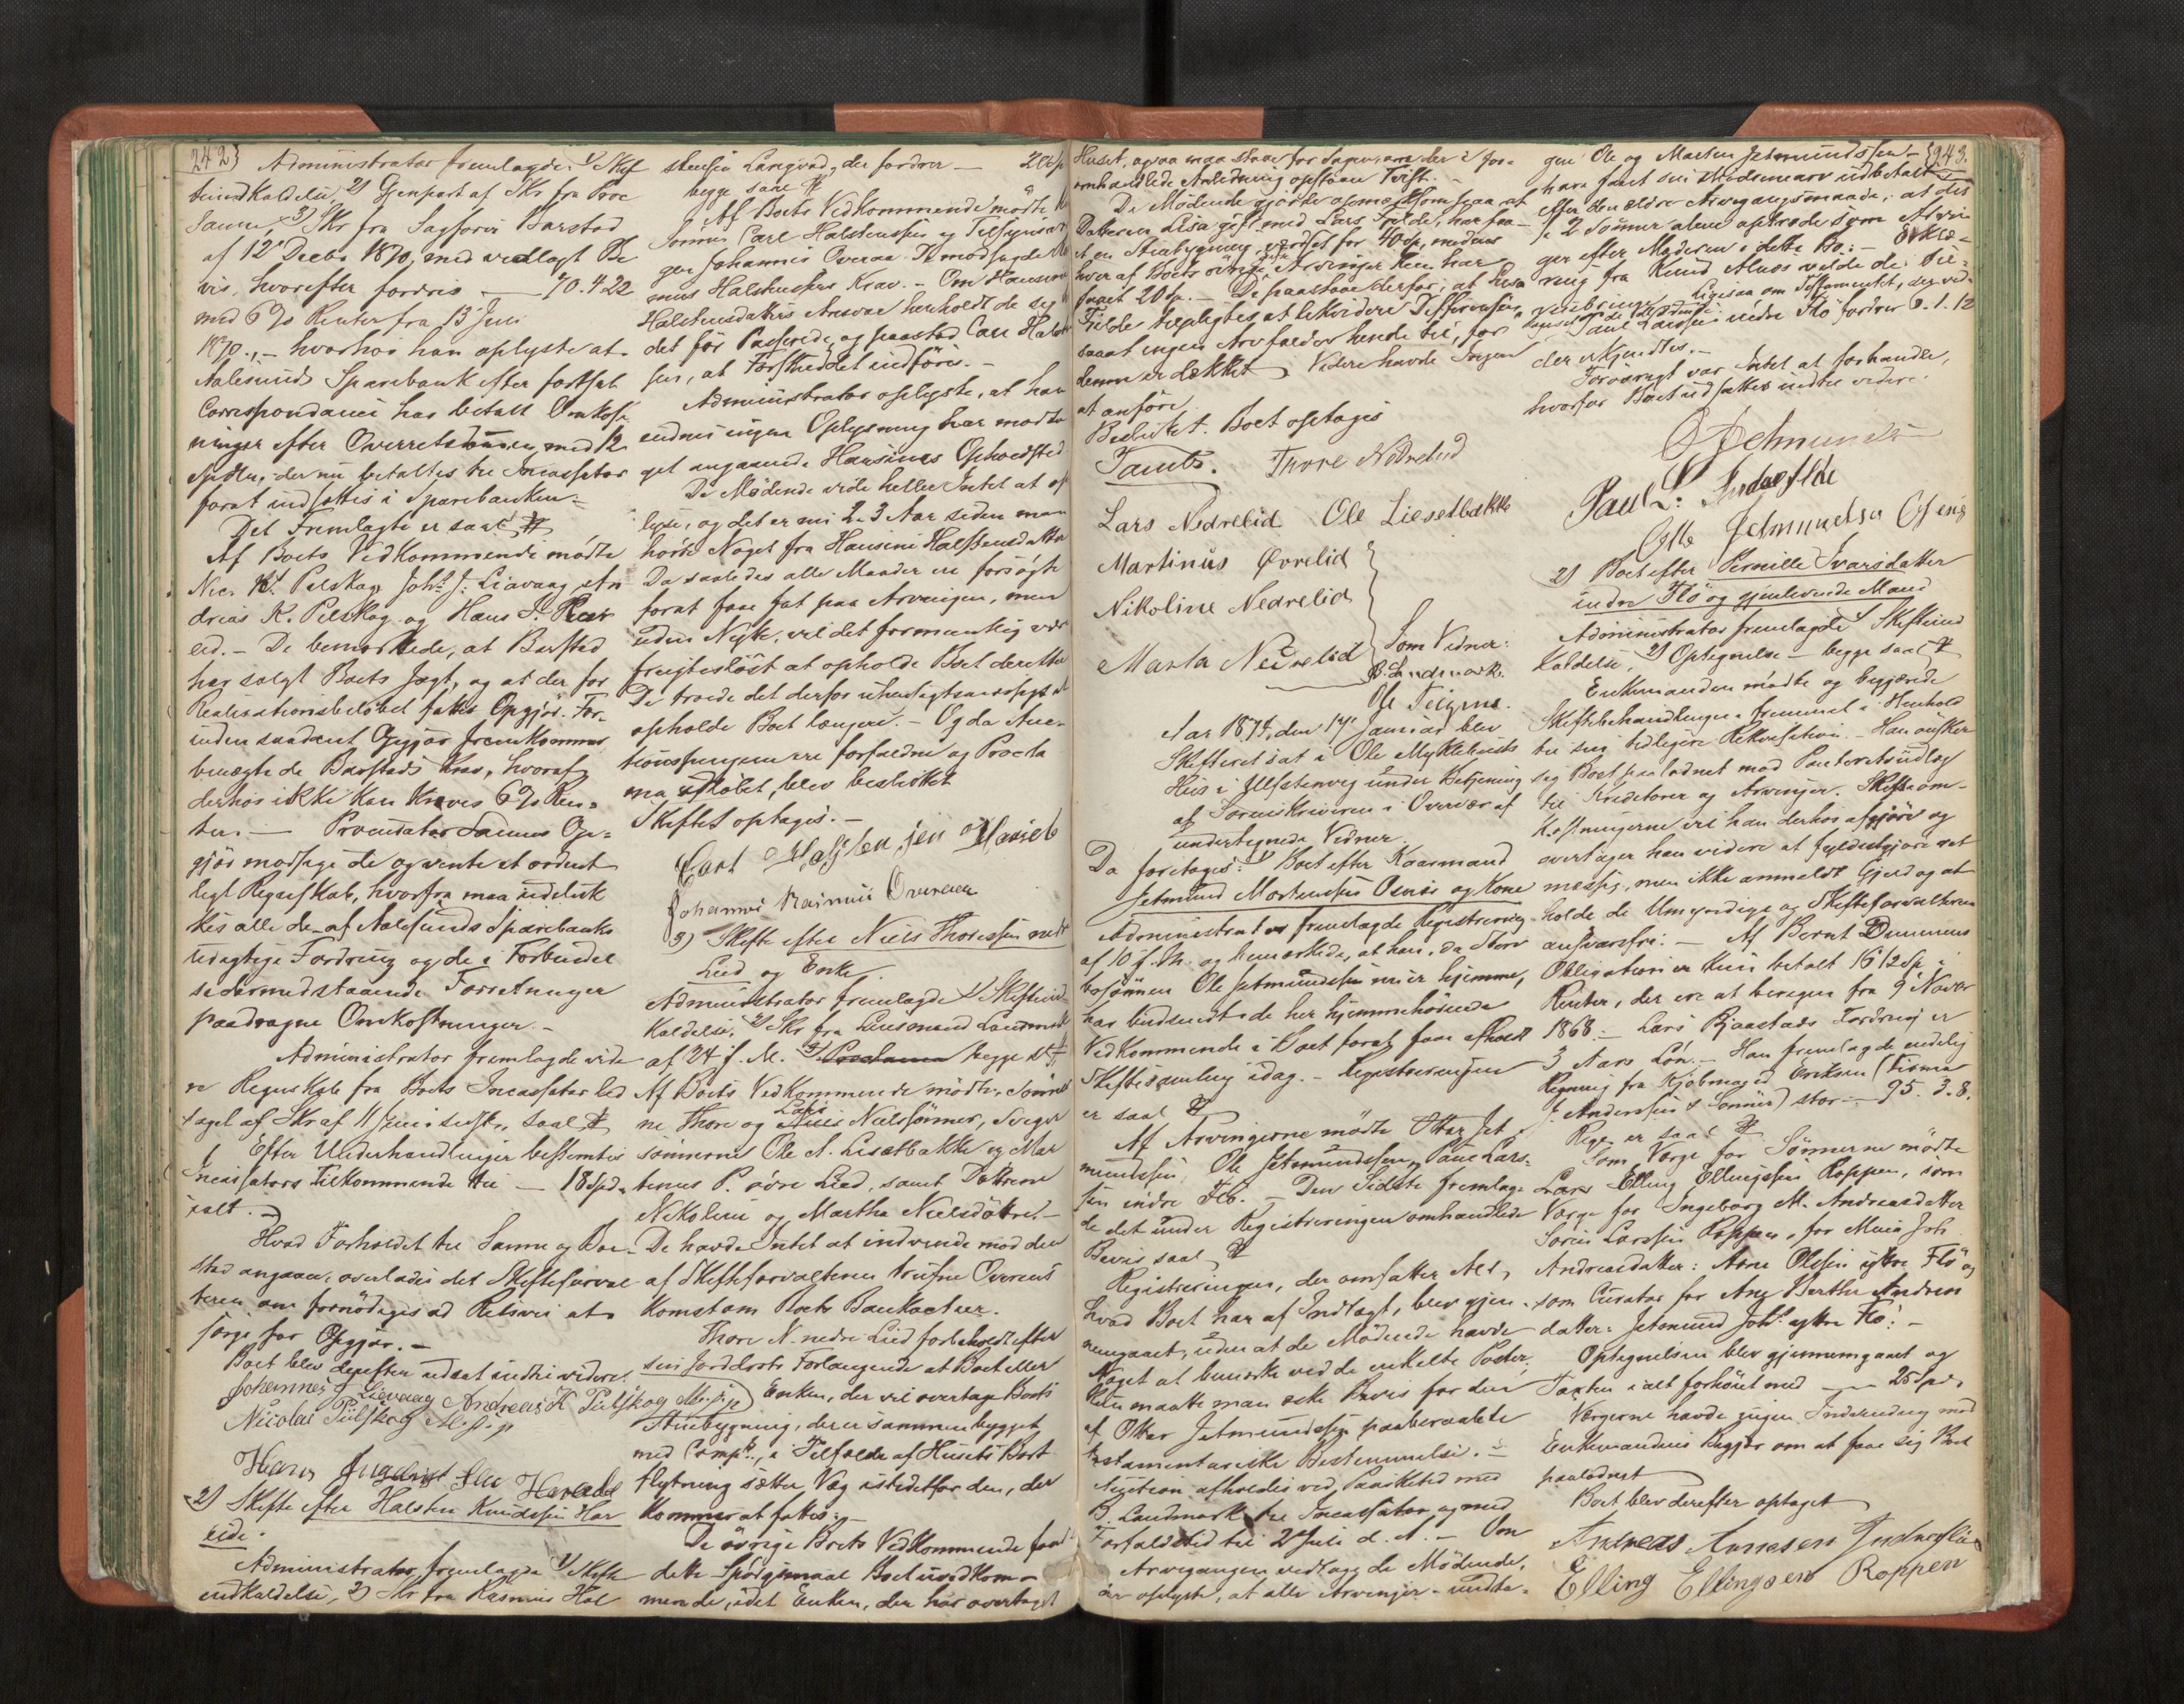 242
Administrator fremlagde 1) Skif
teindkaldelse, 2) Gjenpart af Skr fra Proc
Sanne, 3) Skr fra Sagfører Barstad
af 12te Decbr 1870, med vedlagt Be
vis, hvorefter fordres — 70.4.22
med 6 % Renter fra 13 Juli
1870., — hvorhos han oplyste at
Aalesunds Sparebank efter fortsat
Correspondance har betalt Omkost
ninger efter Overretsdommen med 12
Spdlr, der nu betaltes til Incassator
forat indsættes i Sparebanken.
Det Fremlagte er saal.
Af Boets Vedkommende mødte
Nic. K. Pilskog Johs J. Liavaag, An
dreas K. Pilskog og Hans I. Har
eid. — De bemærkede, at Barstad
har solgt Boets Jagt, og at der for
Realisationsbeløbet fattes Opgjør. For
inden saadant Opgjør fremkommer
benægte de Barstads Krav, hvoraf
derhos ikke kan kræves 6 % Ren
ter. — Procurator Sannes Op
gjør modsage de og vente et ordent
ligt Regnskab, hvorfra maa udeluk
kes alle de af Aalesunds Sparebanks
urigtige Fordring og de i Forbindel
se dermed staaende Forretninger
paadragne Omkostninger. —
Administrator fremlagde vide
re Regnskab fra Boets Incassator led
saget af Skr af 11 Juni sidstl., saal.
Efter Underhandlinger bestemtes
Incassators Tilkommende til — 18 Spd.
ialt.
Hvad Forholdet til Sanne og Bar
stad angaaer, overlades det Skifteforval
teren om fornødiges ad Retsvei at
sørge for Opgjør. —
Boet blev derefter udsat indtil videre.
Johannes J. Liavaag Andreas K Pilskog M.f.p.
Nicolai Pilskog M.f.p.
Hans Ingebrigt Hareide
2) Skifte efter Halsten Knudssen Har
eide.
Administrator fremlagde 1) Skifte
indkaldelse, 2) Skr fra Rasmus Hal
stensen Langvad, der fordrer — 20 Sp
begge saal.
Af Boets Vedkommende mødte
Sønnen Carl Halstensen og Tilsynsvær
gen Johannes Overaa. De modsagde Ras
mus Halstensens Krav. — Om Hansine
Halstensdatters Ansvar henholdt de sig
det før Passerede, og paastod Carl Halsten
sen, at Forskuddet indføres. —
Administrator oplyste, at han
endnu ingen Oplysning har modta
get angaaende Hansines Opholdsted
De Mødende vide heller Intet at op
lyse, og det er nu 2 a 3 Aar siden man
hørte Noget fra Hansine Halstensdatter
Da saaledes alle Maader ere forsøgte
forat faae fat paa Arvingen, men
uden Nytte, vil det formentlig være
frugtesløst at opholde Boet derefter
De troede det derfor uhensigtsmæssigt at
opholde Boet længere. — Og da Auc
tionspengene ere forfaldne og Procla
ma udløbet, blev besluttet
Skiftet optages. —
Carl Halstensen Hareide
Johannes Rasmus Overaa
3) Skifte efter Niels Thoresen nedre
Lied og Enke.
Administrator fremlagde 1) Skifteind
kaldelse, 2) Skr fra Lensmand Landmark
af 24 f. M. 3) Proclama begge saal.
Af Boets Vedkommende mødte, Sønner
ne Thore og Lars Nielssønner, Sviger
sønnerne Ole A. Liesetbakke og Mar
tinus P. øvre Lied, samt Døttrene
Nikoline og Martha Nielsdøttre. —
De havde Intet at indvende mod den
af Skifteforvalteren trufne Overens
komst om Boets Bankactier.
Thore N. nedre Lied forbeholdt efter
sin Jorddrots Forlangende at Boet eller
Enken, der vil overtage Boets
Stuebygning, der er sammenbygget
med Comp., i Tilfælde af Husets Bort
flytning sætter Væg istedetfor den, der
kommer at fattes. —
De øvrige Boets Vedkommende fandt
dette Spørgsmaal Boet uvedkom
mende, idet Enken, der har overtaget
243.
Huset, ogsaa maa staae for Sagen, om der i for
omhandlede Anledning opstaaer Tvist. —
De Mødende gjorde opmærksom paa, at
Datteren Lisa gift med Lars Fjelde, har faa
et en Stuebygning værdsat for 40 Sp, medens
hver af Boets øvrige Arvinger kun har
faaet 20 Sp. — De paastaae derfor, at Lisa
Fjelde tilpligtes at likvidere Differensen,
saaat ingen Arv falder hende til, før
denne er dækket. Videre havde Ingen
at anføre.
Besluttet. Boet optages
Landts. Thore Nedrelid
Lars Nedrelid Ole Liesetbakke
Martinus Øvrelid
Nikoline Nedrelid
Marta Nedrelid
Som Vidner:
B. Landmark.
Ole Teigene.
Aar 1874, den 14de Januar blev
Skifteret sat i Ole Myklebusts
Huus i Ulfstenvig under Betjening
af Sorenskriveren i Overvær af
undertegnede Vidner.
Da foretages: 1) Boet efter Kaarmand
Jetmund Mortensen Osnæs og Kone
Administrator fremlagde Registrering
af 10 f. M. og bemærkede, at han, da Stor
bosønnen Ole Jetmundsen nu er hjemme,
har budsendt de her hjemmehørende
Vedkommende i Boet forat faae afholdt
Skiftesamling idag. — Registreringen
er saal.
Af Arvingerne mødte Ottar Jet
mundsen, Ole Jetmundsen, Paul Lars
sen indre Flø. — Den Sidste fremlag
de det under Registreringen omhandlede
Bevis saal.
Registreringen, der omfatter Alt,
hvad Boet har af Indlagt, blev gjen
nemgaaet, uden at de Mødende havde
Noget at bemærke ved de enkelte Poster.
Kun maatte man æske Bevis for den
af Ottar Jetmundsen paaberaabte
testamentariske Bestemmelse. —
Auction afholdes ved Landhed med
B. Landmark til Incassator og med
Forfaldstid til 2 Juli d. A. — Om
Arvegangen vedtog de Mødende,
der oplyste, at alle Arvinger — undta
gen Ole og Morten Jetmundsen —
have faaet sin Mødrenearv udbetalt
efter den ældre Arvegangsmaade, at dis
se 2 Sønner alene optræde som Arvin
ger efter Moderen i dette Bo. — Erklæ
ring fra Knud Alnes vilde de til
veiebringe. Ligesaa om Testamentet, der ved
toges af de Mødende.
Paul Larssen indre Flø fordrer 0.1.12
der erkjendtes. —
Forøvrigt var Intet at forhandle,
hvorfor Boet udsattes indtil videre.
O Jetmundsen
Paul L. Indreflø
Otte Jetmundsen Osnæs
2) Boet efter Pernille Ivarsdatter
indre Flø og gjenlevende Mand
Administrator fremlagde 1) Skifteind
kaldelse, 2) Optegnelse — begge saal.
Enkemanden mødte og begjærede
Skiftebehandlingen fremmet i Henhold
til sin tidligere Rekvisition. — Han ønsker
sig Boet paalodnet mod Panteretsudlæg
til Kreditorer og Arvinger. Skifteom
kostningerne vil han derhos afgjøre og
overtager han videre at fyldestgjøre ret
mæssig, men ikke anmeldt Gjæld og at
holde de Umyndige og Skifteforvalteren
ansvarsfri. — Af Bernt Dimmens
Obligation er kun betalt 16 1/2 Sp i
Renter, der ere at beregne fra 9 Novbr
1868. — Lars Bjaastads Fordring er
3 Aars Løn. — Han fremlagde endelig
Regning fra Kjøbmand Eriksen (Firma
J. Anderssen & Sønner) stor — 95.3.8.
Regn. er saal.
Som Værge for Sønnerne mødte
Lars Elling Ellingsen Roppen, som
Værge for Ingeborg M. Andreasdatter
Søren Larssen Roppen, for Marie Joh.
Andreasdatter: Arne Olsen ytre Flø og
som Curator for Ane Berthe Andreas
datter: Jetmund Johs. yttre Flø. —
Optegnelsen blev gjennemgaaet og
Taxten ialt forhøiet med — 25 Spd.
Værgerne havde ingen Indvending mod
Enkemandens Begjær om at faae sig Boet
paalodnet
Boet blev derefter optaget
Andreas Arnesen Indreflø
Elling Ellingsen Roppen